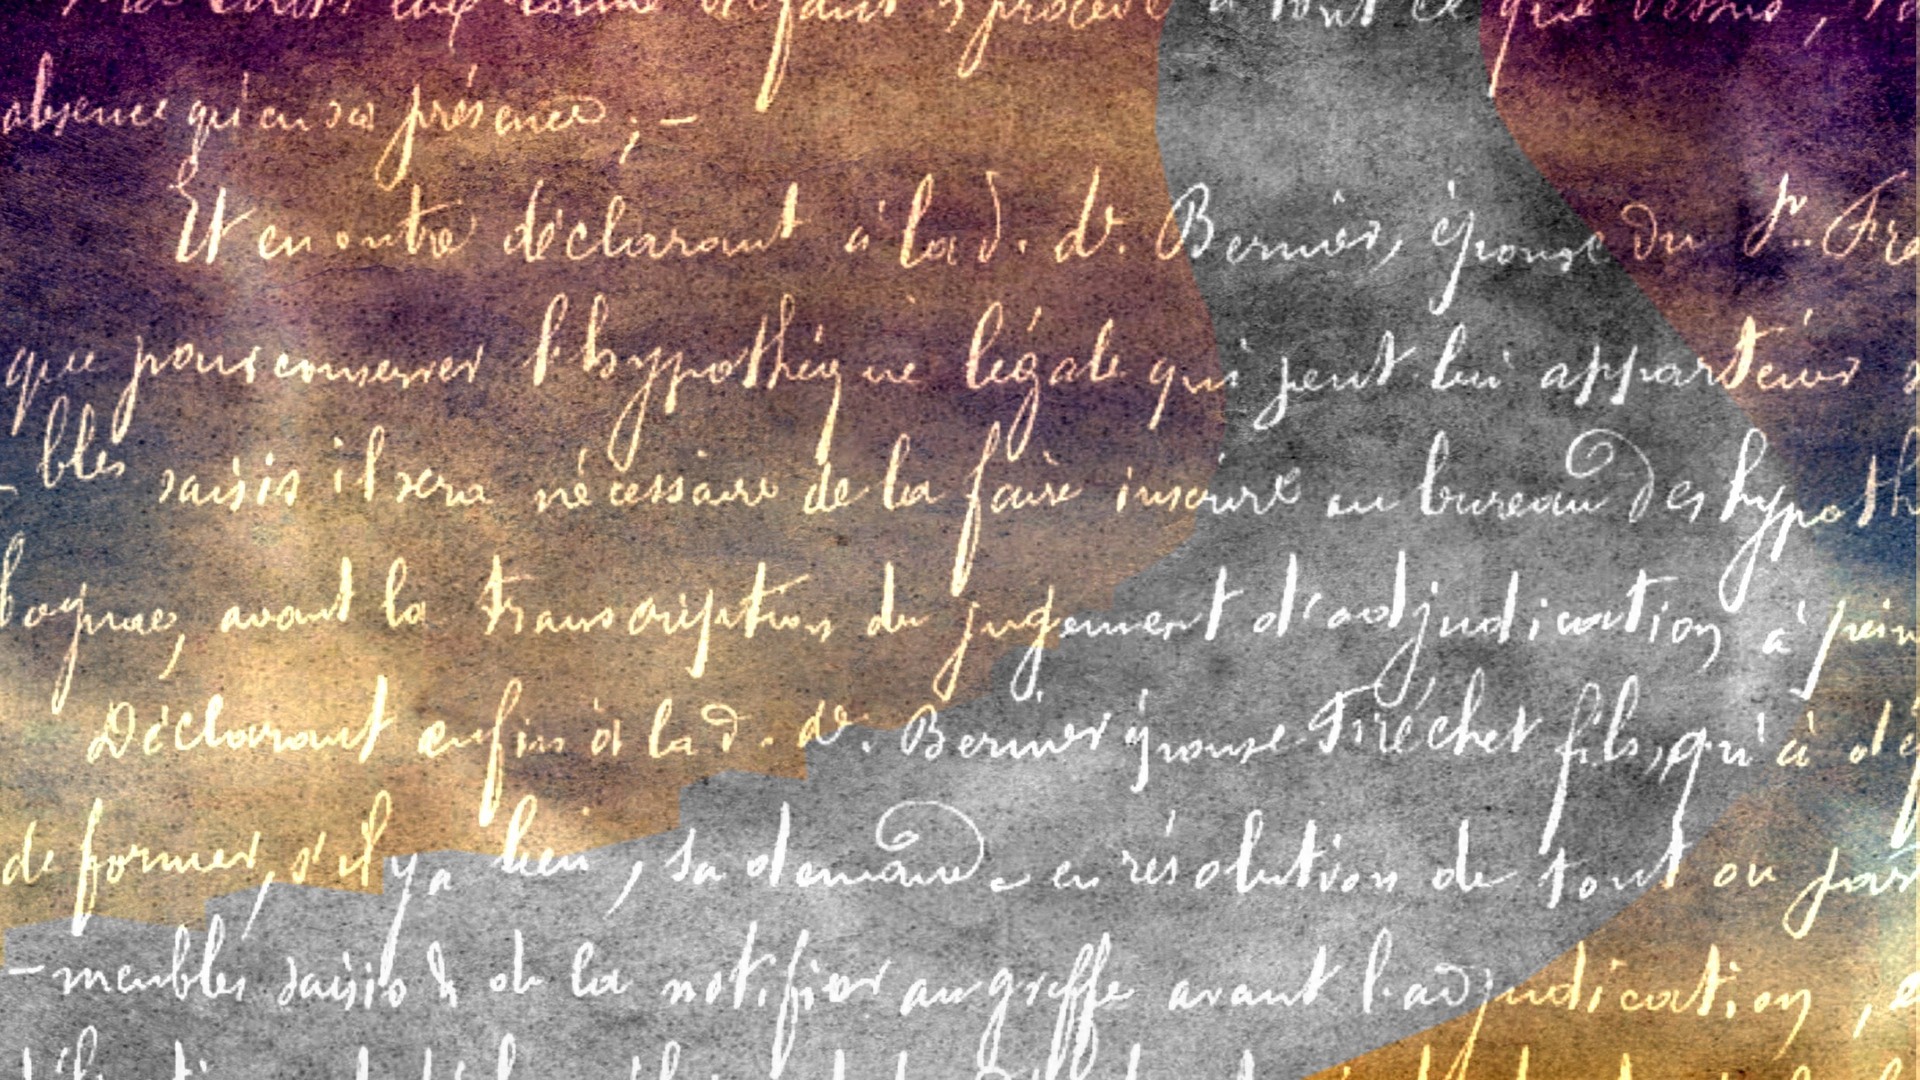 défaut & procédé à tout ce que dessus,
absence qu'en sa présence ; —
Et en outre déclarant à lad. de. Bernier, épouse du Sr. Fré
que pour conserver l'hypothèque légale qui peut lui appartenir
- bles saisis il sera nécessaire de la faire inscrire au bureau des hypoth
avant la transcription du jugement d'adjudication à pein
Déclarant enfin à lad. de. Bernier épouse Fréchet fils, qu'à déf
de former, s'il y a lieu, sa demande en résolution de tout ou par
- meubles saisis & de la notifier au greffe avant l'adjudication,